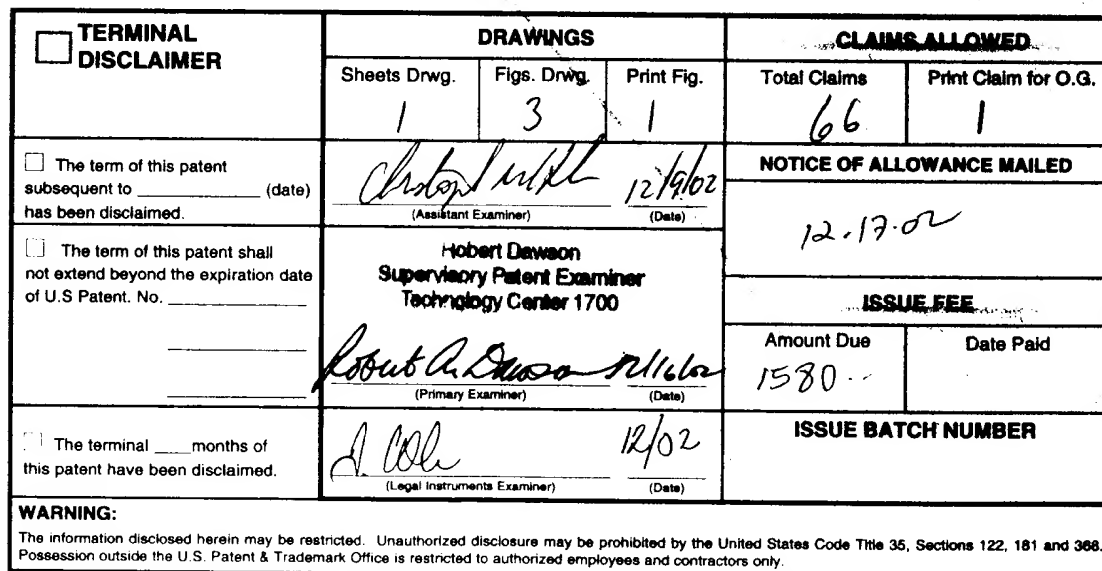 TERMINAL
DISCLAIMER
DRAWINGS
CLAIMS ALLOWED
Sheets Drwg. Figs. Drwg. Print Fig. Total Claims Print Claim for O.G.
1 3 1 66 1
The term of this patent
subsequent to ____________ (date)
has been disclaimed.
12/9/02
(Assistant Examiner) (Date)
NOTICE OF ALLOWANCE MAILED
12.17.02
The term of this patent shall
not extend beyond the expiration date
of U.S Patent. No. ____________
Robert Dawson
Supervisory Patent Examiner
Technology Center 1700
Robert A. Dawson 12/16/02
(Primary Examiner) (Date)
ISSUE FEE
Amount Due Date Paid
1580
The terminal ____months of
this patent have been disclaimed.
12/02
(Legal Instruments Examiner) (Date)
ISSUE BATCH NUMBER
WARNING:
The information disclosed herein may be restricted. Unauthorized disclosure may be prohibited by the United States Code Title 35, Sections 122, 181 and 368.
Possession outside the U.S. Patent & Trademark Office is restricted to authorized employees and contractors only.